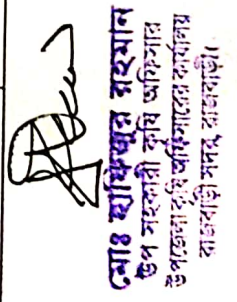 মোঃ হাফিজুর রহমান
উপ সহকারী কৃষি অফিসার
উপজেলা কৃষি অফিসারের কার্যালয়
রাজবাড়ী সদর, রাজবাড়ী।